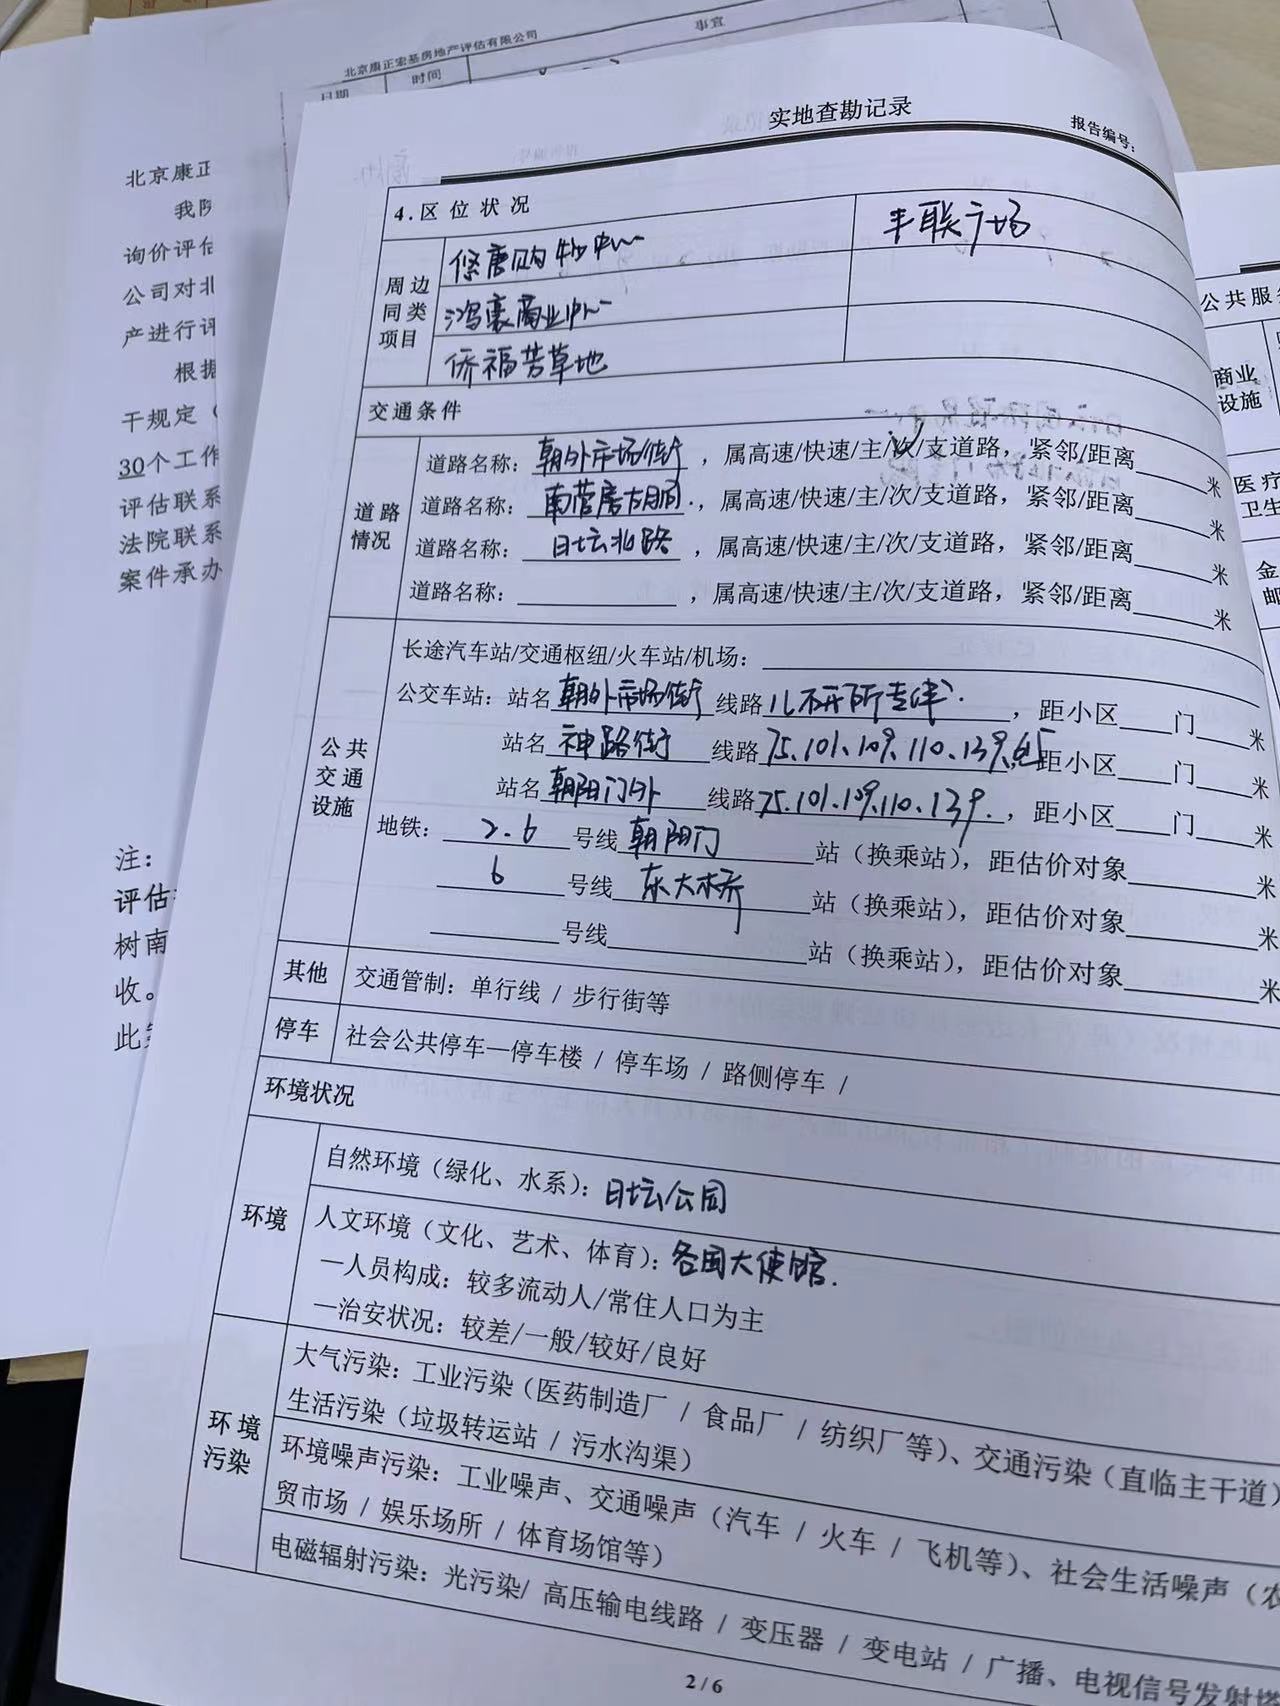 北京康正宏基房地产评估有限公司
事宜
日期
时间
北京康正
我院
询价评估
公司对北
产进行评
根据
干规定（
30个工作
评估联系
法院联系
案件承办
注：
评估
树南
收。
此
实地查勘记录
报告编号：
4.区位状况
周边同类项目
悠唐购物中心
丰联广场
鸿豪商业中心
侨福芳草地
交通条件
道路情况
道路名称：朝外市场街，属高速/快速/主/次/支道路，紧邻/距离____米
道路名称：南营房胡同，属高速/快速/主/次/支道路，紧邻/距离____米
道路名称：日坛北路，属高速/快速/主/次/支道路，紧邻/距离____米
道路名称：____，属高速/快速/主/次/支道路，紧邻/距离____米
公共交通设施
长途汽车站/交通枢纽/火车站/机场：
公交车站：站名朝外市场街线路儿研所专线，距小区____门____米
站名神路街线路75.101.109.110.139.615距小区____门____米
站名朝阳门外线路75.101.109.110.139.，距小区____门____米
地铁：2.6号线朝阳门站（换乘站），距估价对象____米
6号线东大桥站（换乘站），距估价对象____米
____号线____站（换乘站），距估价对象____米
其他
交通管制：单行线 / 步行街等
停车
社会公共停车—停车楼 / 停车场 / 路侧停车 /
环境状况
环境
自然环境（绿化、水系）：日坛公园
人文环境（文化、艺术、体育）：各国大使馆.
—人员构成：较多流动人/常住人口为主
—治安状况：较差/一般/较好/良好
环境污染
大气污染：工业污染（医药制造厂 / 食品厂 / 纺织厂等）、交通污染（直临主干道）
生活污染（垃圾转运站 / 污水沟渠）
环境噪声污染：工业噪声、交通噪声（汽车 / 火车 / 飞机等）、社会生活噪声（农
贸市场 / 娱乐场所 / 体育场馆等）
电磁辐射污染：光污染/ 高压输电线路 / 变压器 / 变电站 / 广播、电视信号发射塔
2 / 6
公共服
商业设施
医疗卫生
金
邮